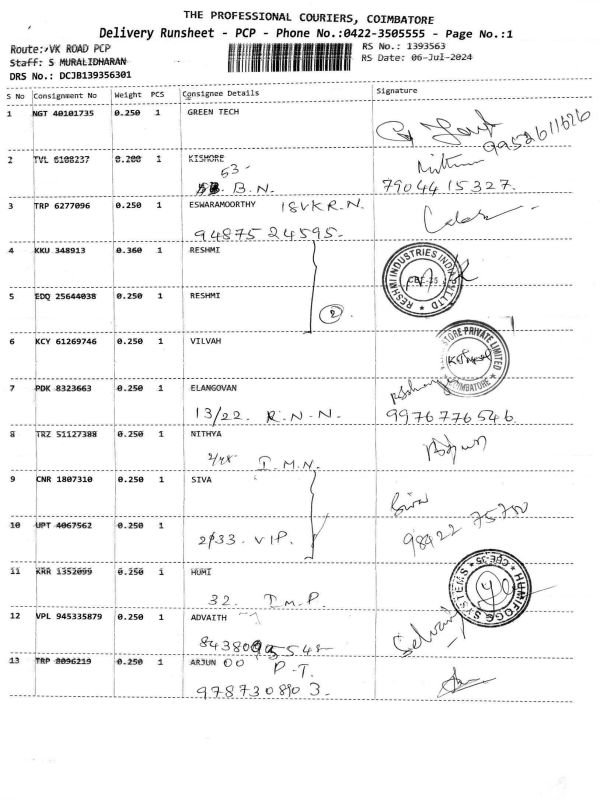 THE PROFESSIONAL COURIERS, COIMBATORE
Delivery Runsheet - PCP - Phone No.:0422-3505555 - Page No.:1
Route: VK ROAD PCP
RS No.: 1393563
Staff: S MURALIDHARAN
RS Date: 06-Jul-2024
DRS No.: DCJB139356301
S No Consignment No Weight PCS Consignee Details Signature
1 NGT 40101735 0.250 1 GREEN TECH
9952611626
2 TVL 6108237 0.200 1 KISHORE
53-
B.N.
7904415327.
3 TRP 6277096 0.250 1 ESWARAMOORTHY 18VKR.N.
9487524595-
4 KKU 348913 0.360 1 RESHMI
RESHMI INDUSTRIES INDIA PVT LTD
CBE-35
5 EDQ 25644038 0.250 1 RESHMI
2
6 KCY 61269746 0.250 1 VILVAH
STORE PRIVATE LIMITED
COIMBATORE
7 PDK 8323663 0.250 1 ELANGOVAN
13/22. R.N.N.
9976776546
8 TRZ 51127388 0.250 1 NITHYA
I.M.N.
9 CNR 1807310 0.250 1 SIVA
Siva
10 UPT 4067562 0.250 1
2/33. VIP.
98422 75700
11 KRR 1352099 0.250 1 HUMI
32. I.M.P.
HUMIFOGG SYSTEMS CBE-35
12 VPL 945335879 0.250 1 ADVAITH
13 TRP 8096219 0.250 1 ARJUN 00 P.T.
9787308903-